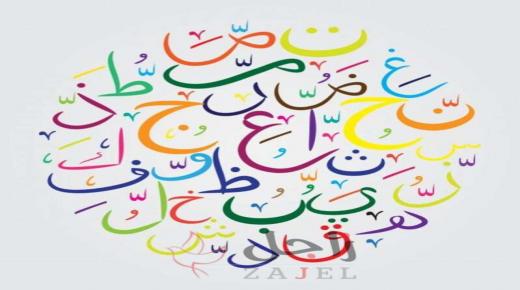 ت ص
غ م ط
ن ح ض ر ج ذ
س ث ا ع ك
ظ و ف
ي ب خ ل
ق ش
زاجل
ZAJEL